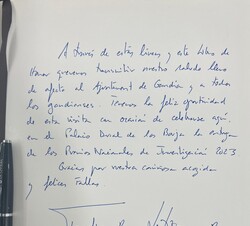 A través de estas líneas y este Libro de
Honor queremos transmitir nuestro saludo lleno
de afecto al Ajuntament de Gandia y a todos
los gandienses. Tenemos la feliz oportunidad
de esta visita con ocasión de celebrarse aquí,
en el Palacio Ducal de los Borja la entrega
de los Premios Nacionales de Investigación 2023
Gracias por vuestra cariñosa acogida
y felices Fallas